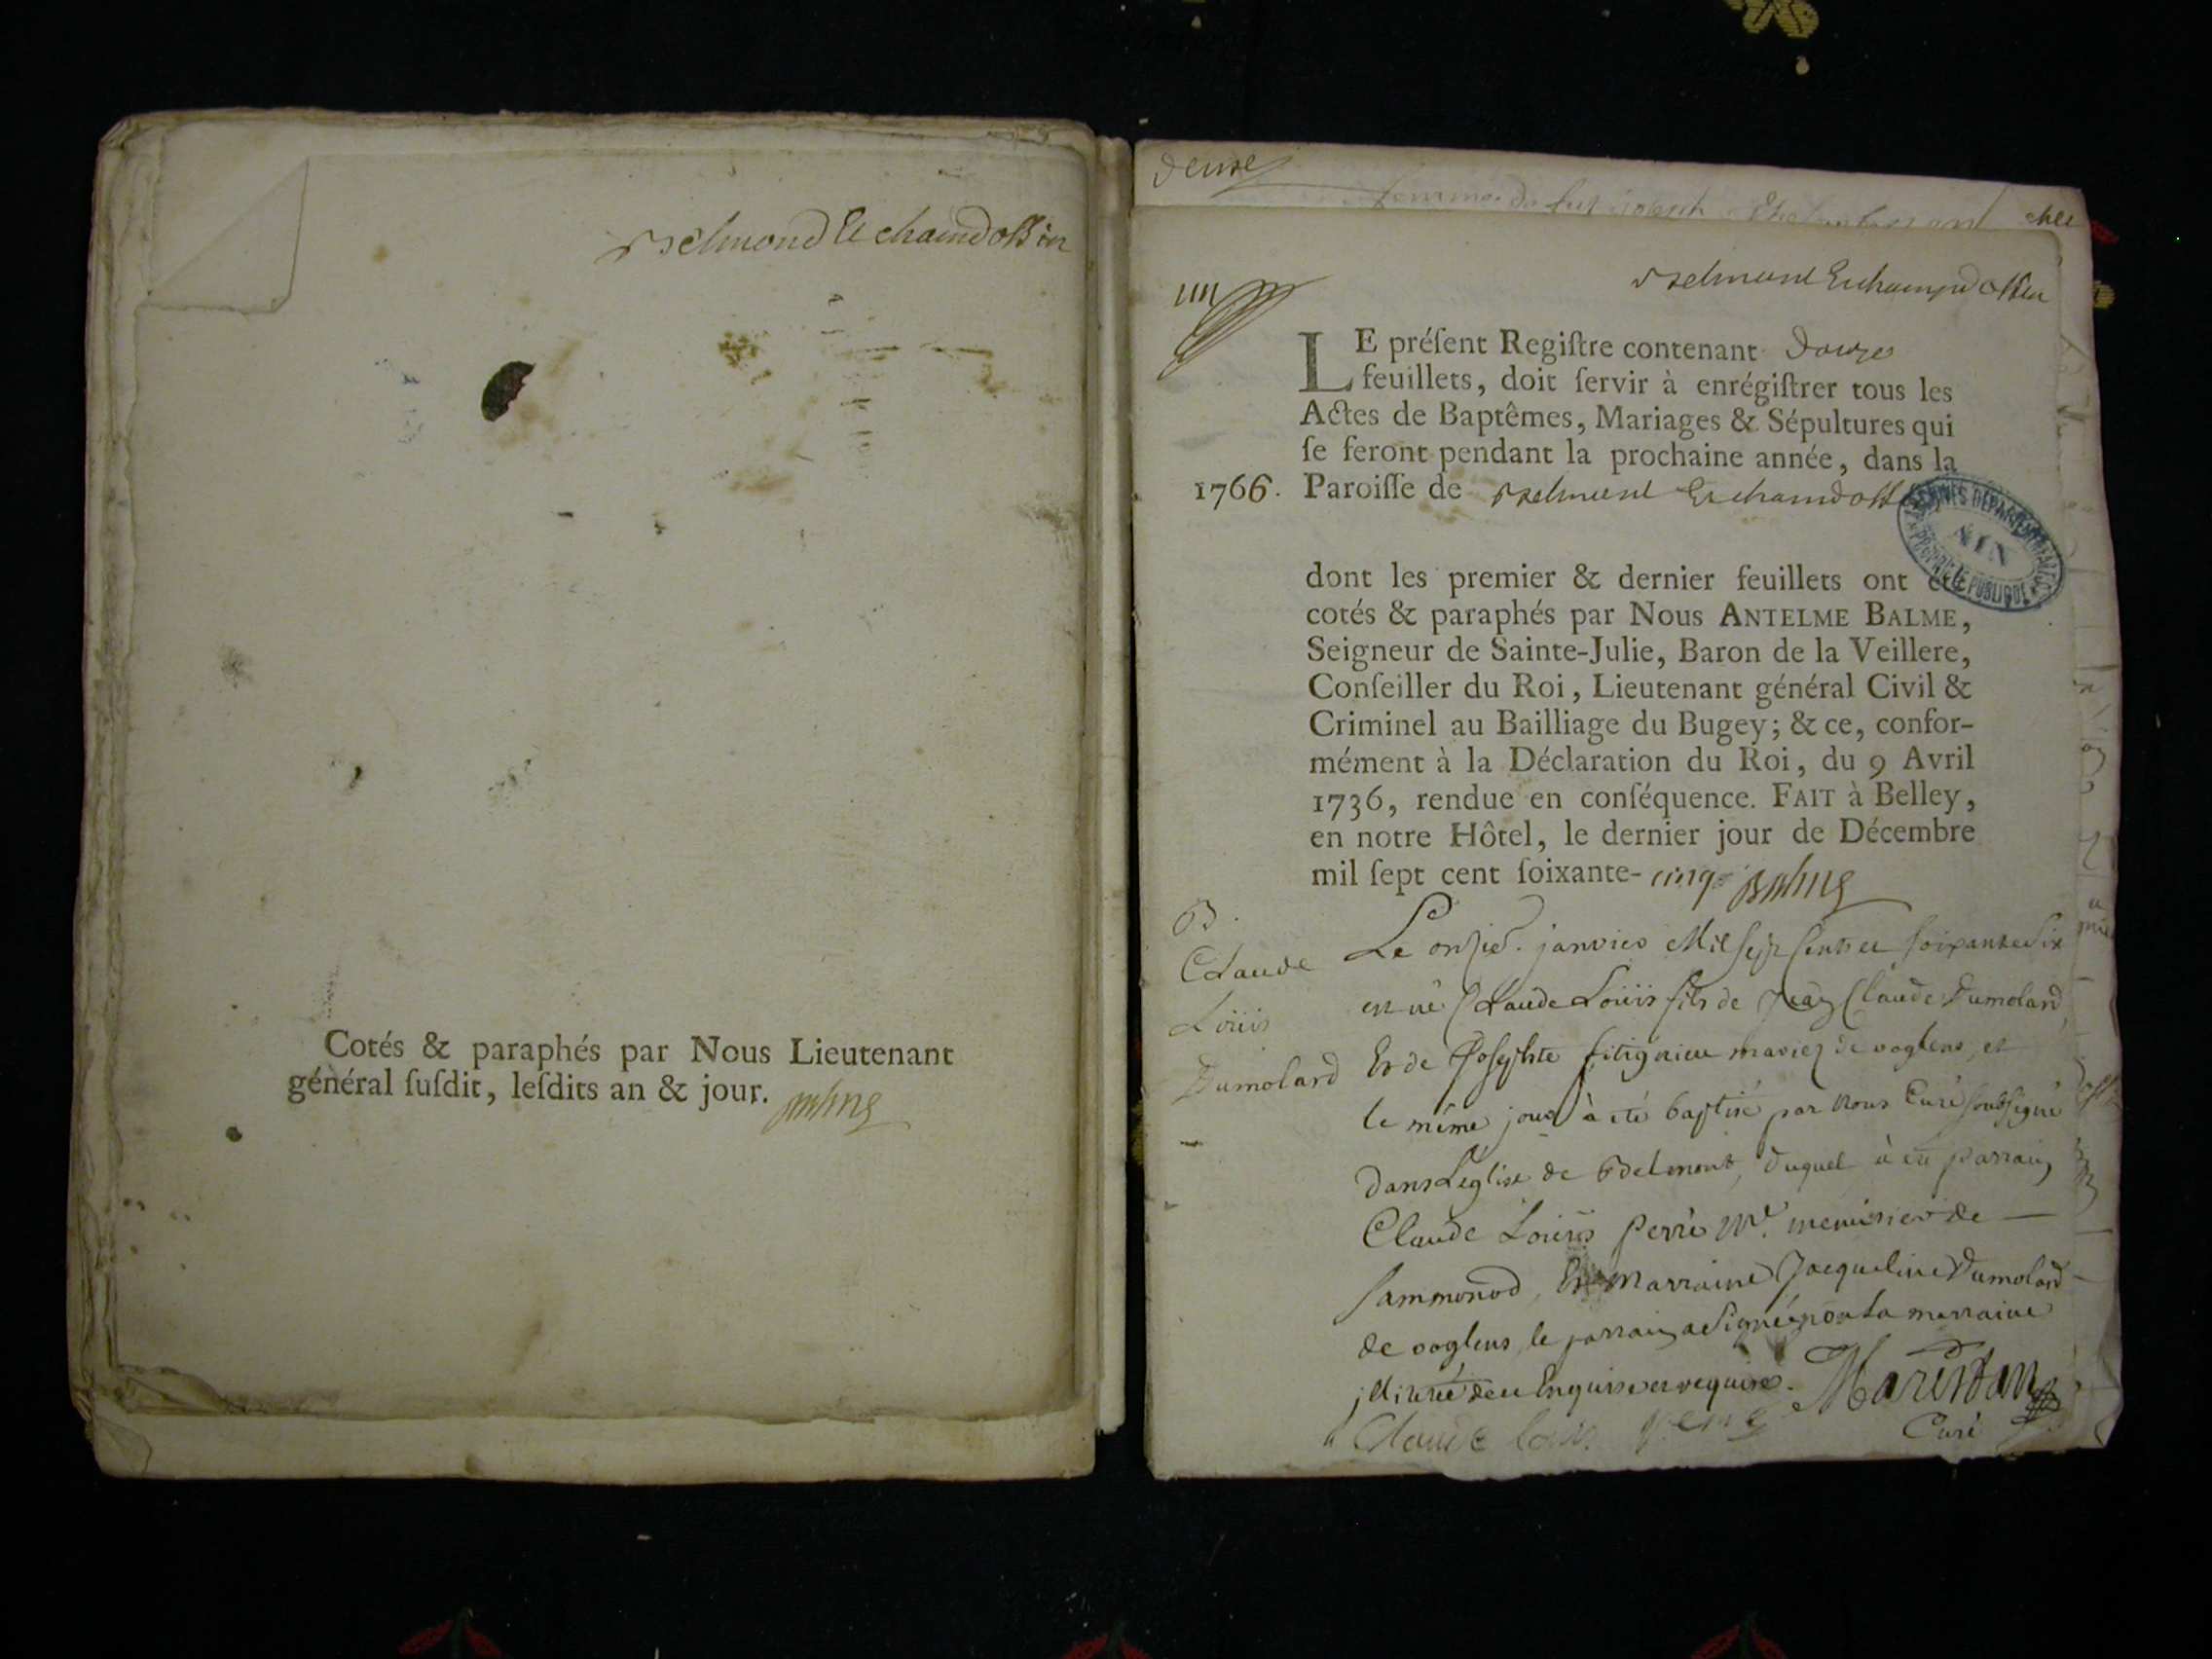 Belmond Et chamdossin
Cotés & paraphés par Nous Lieutenant
général ſuſdit, leſdits an & jour. Balme
deuze
Belmont Et champdossin
LE préſent Regiſtre contenant douze
feuillets, doit ſervir à enrégiſtrer tous les
Actes de Baptêmes, Mariages & Sépultures qui
ſe feront pendant la prochaine année, dans la
1766. Paroiſſe de Belmont Et chamdoss
ARCHIVES DÉPARTEMENTALES
AIN
PROPRIÉTÉ PUBLIQUE
dont les premier & dernier feuillets ont été
cotés & paraphés par Nous ANTELME BALME,
Seigneur de Sainte-Julie, Baron de la Veillere,
Conſeiller du Roi, Lieutenant général Civil &
Criminel au Bailliage du Bugey; & ce, confor-
mément à la Déclaration du Roi, du 9 Avril
1736, rendue en conſéquence. FAIT à Belley,
en notre Hôtel, le dernier jour de Décembre
mil ſept cent ſoixante- cinq Balme
B.
Claude
Loüis
Dumolard
Le onzie. janvier Mil sept cents et soixante six
est né Claude Loüis fils de Jean Claude Dumolard
Et de Josephte fitignieu mariez de voglens, et
le même jour à été baptisé par nous Curé soubsigné
dans L'eglise de Belmont, duquel à été parrain
Claude Loüis Perre Me. menusier de
Sammonod, Et Marraine Jacqueline Dumolard
de voglens, le parrain a signé non la marraine
illiterée de ce Enquise et requise. Marestan
Claude louis Curé